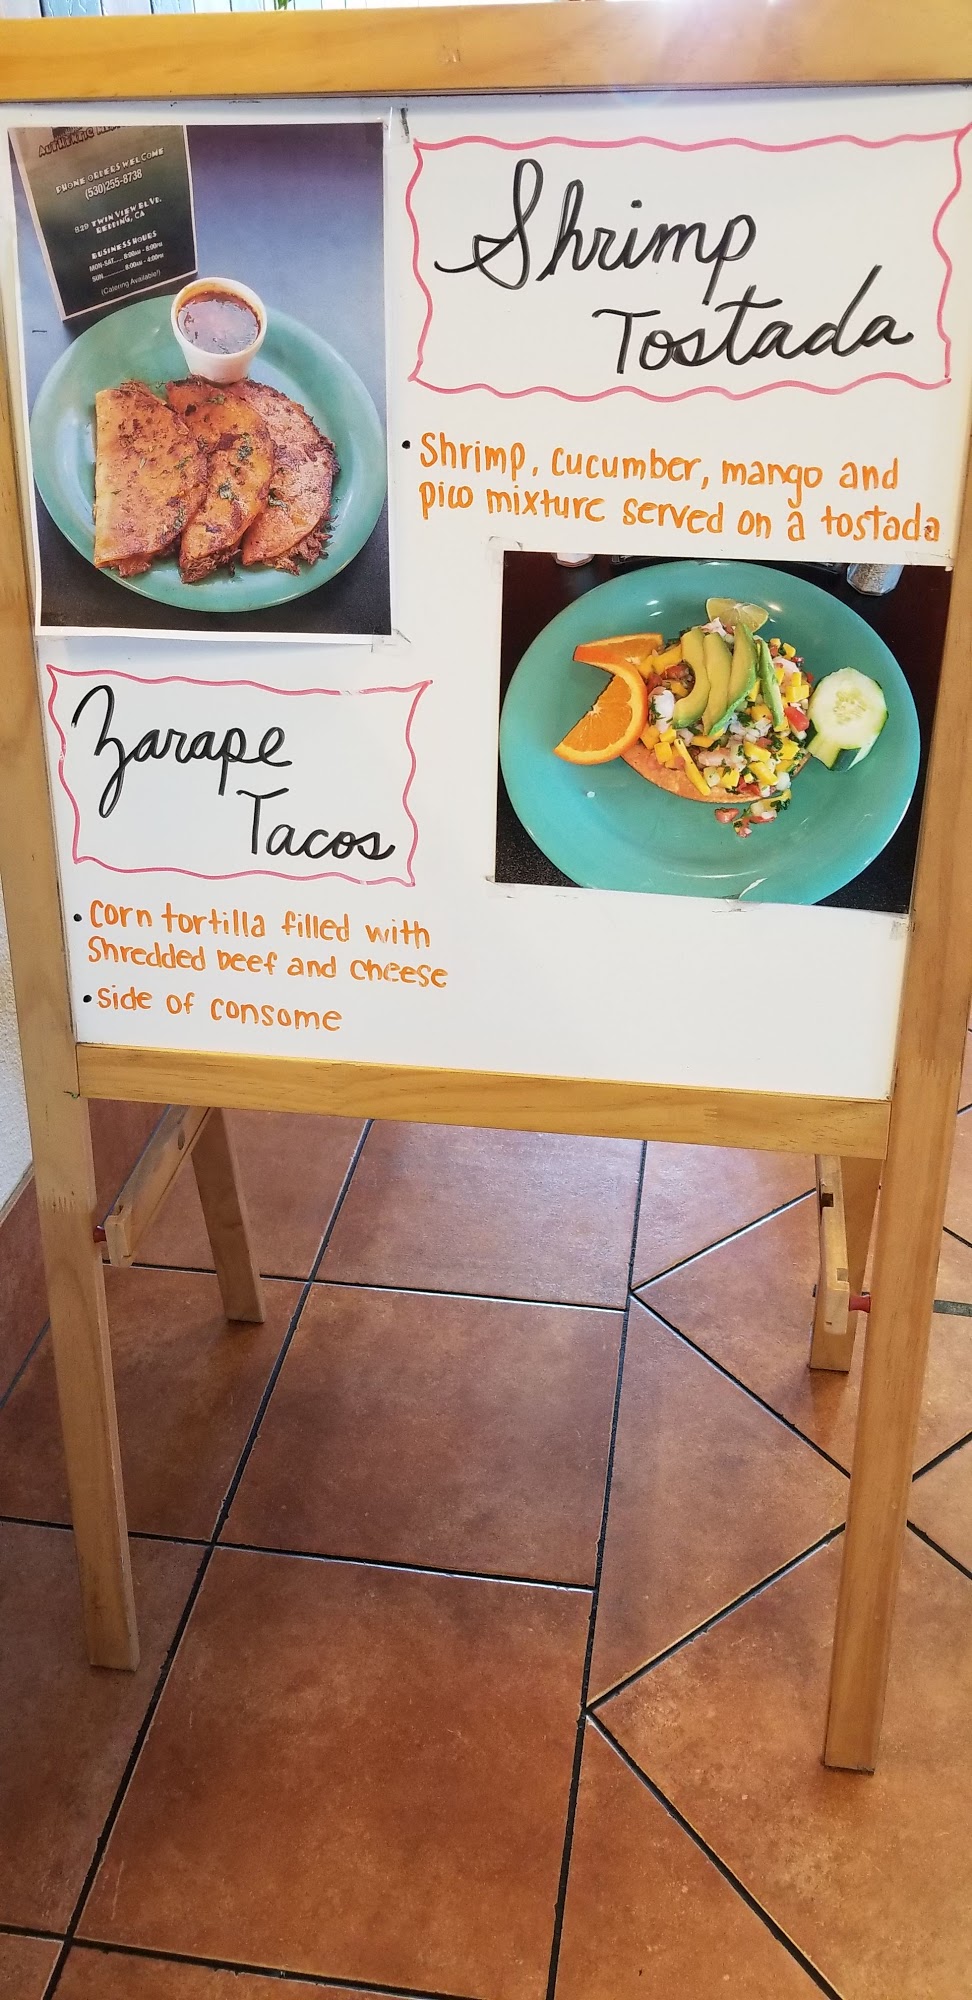 AUTHENTIC
PHONE ORDERS WELCOME
(530)255-8738
829 TWIN VIEW BLVD.
REDDING, CA
BUSINESS HOURS
MON-SAT..... 8:00AM - 8:00PM
SUN........... 8:00AM - 4:00PM
(Catering Available!)
Shrimp
Tostada
• Shrimp, cucumber, mango and
pico mixture served on a tostada
Zarape
Tacos
• corn tortilla filled with
Shredded beef and cheese
• side of consome